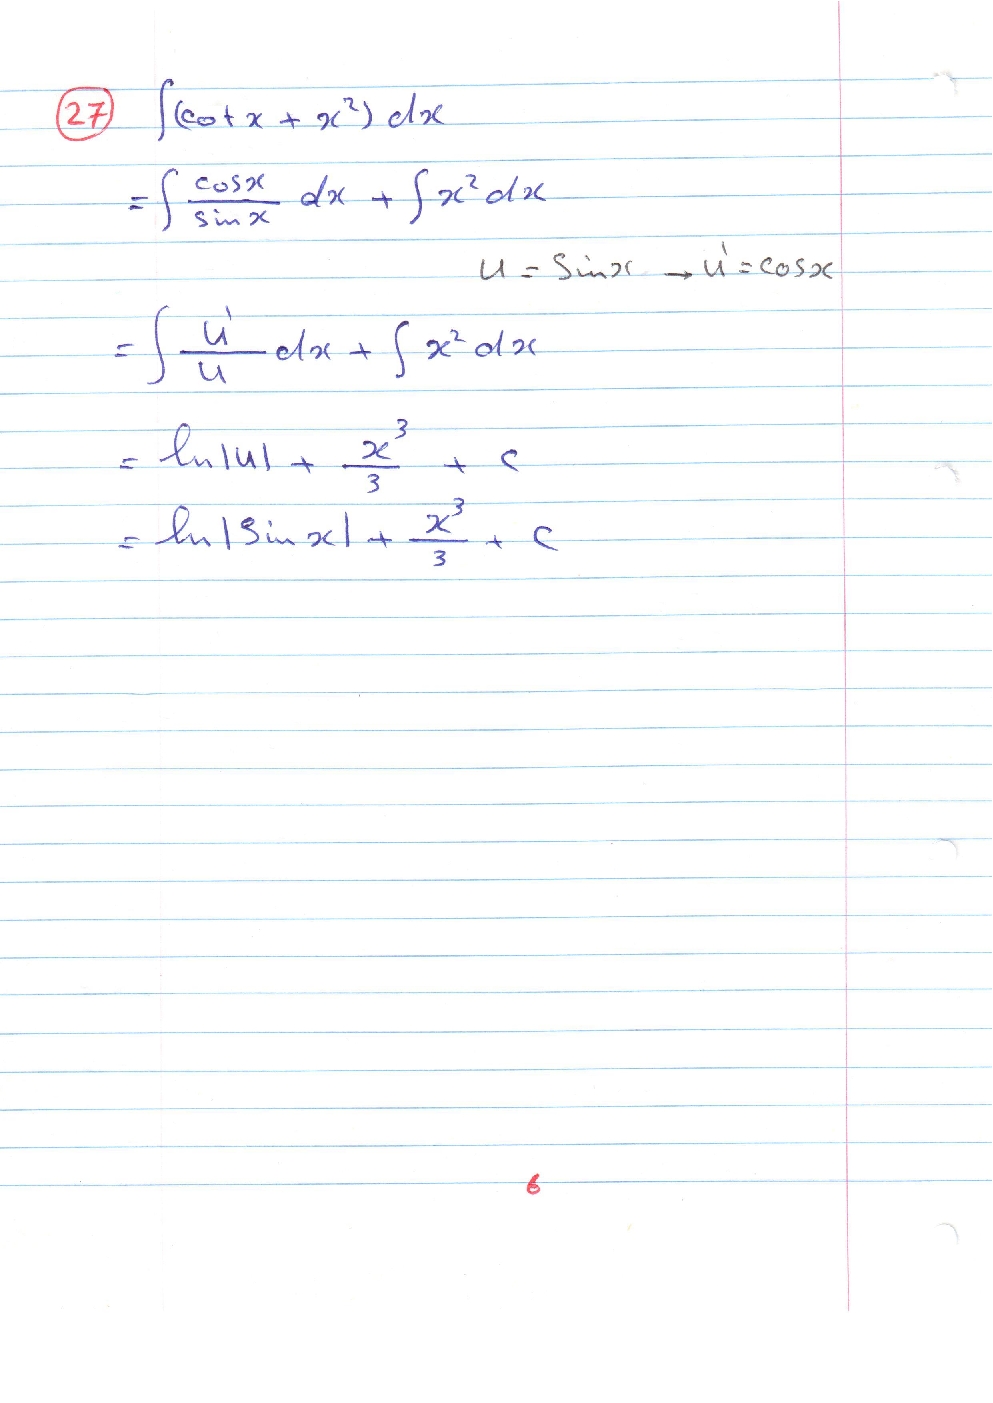 27 ∫(cot x + x²) dx
= ∫ cosx/sinx dx + ∫ x² dx
u = sinx → u' = cosx
= ∫ u'/u dx + ∫ x² dx
= ln|u| + x³/3 + c
= ln|sin x| + x³/3 + c
6